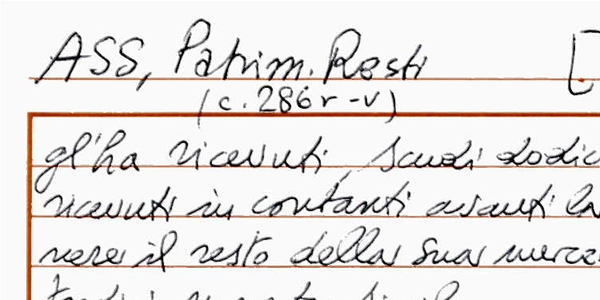 ASS, Patrim. Resti [
(c. 286 r - v)
gl'ha ricevuti, scudi dodic
ricevuti in contanti avanti la
vere il resto della sua merca